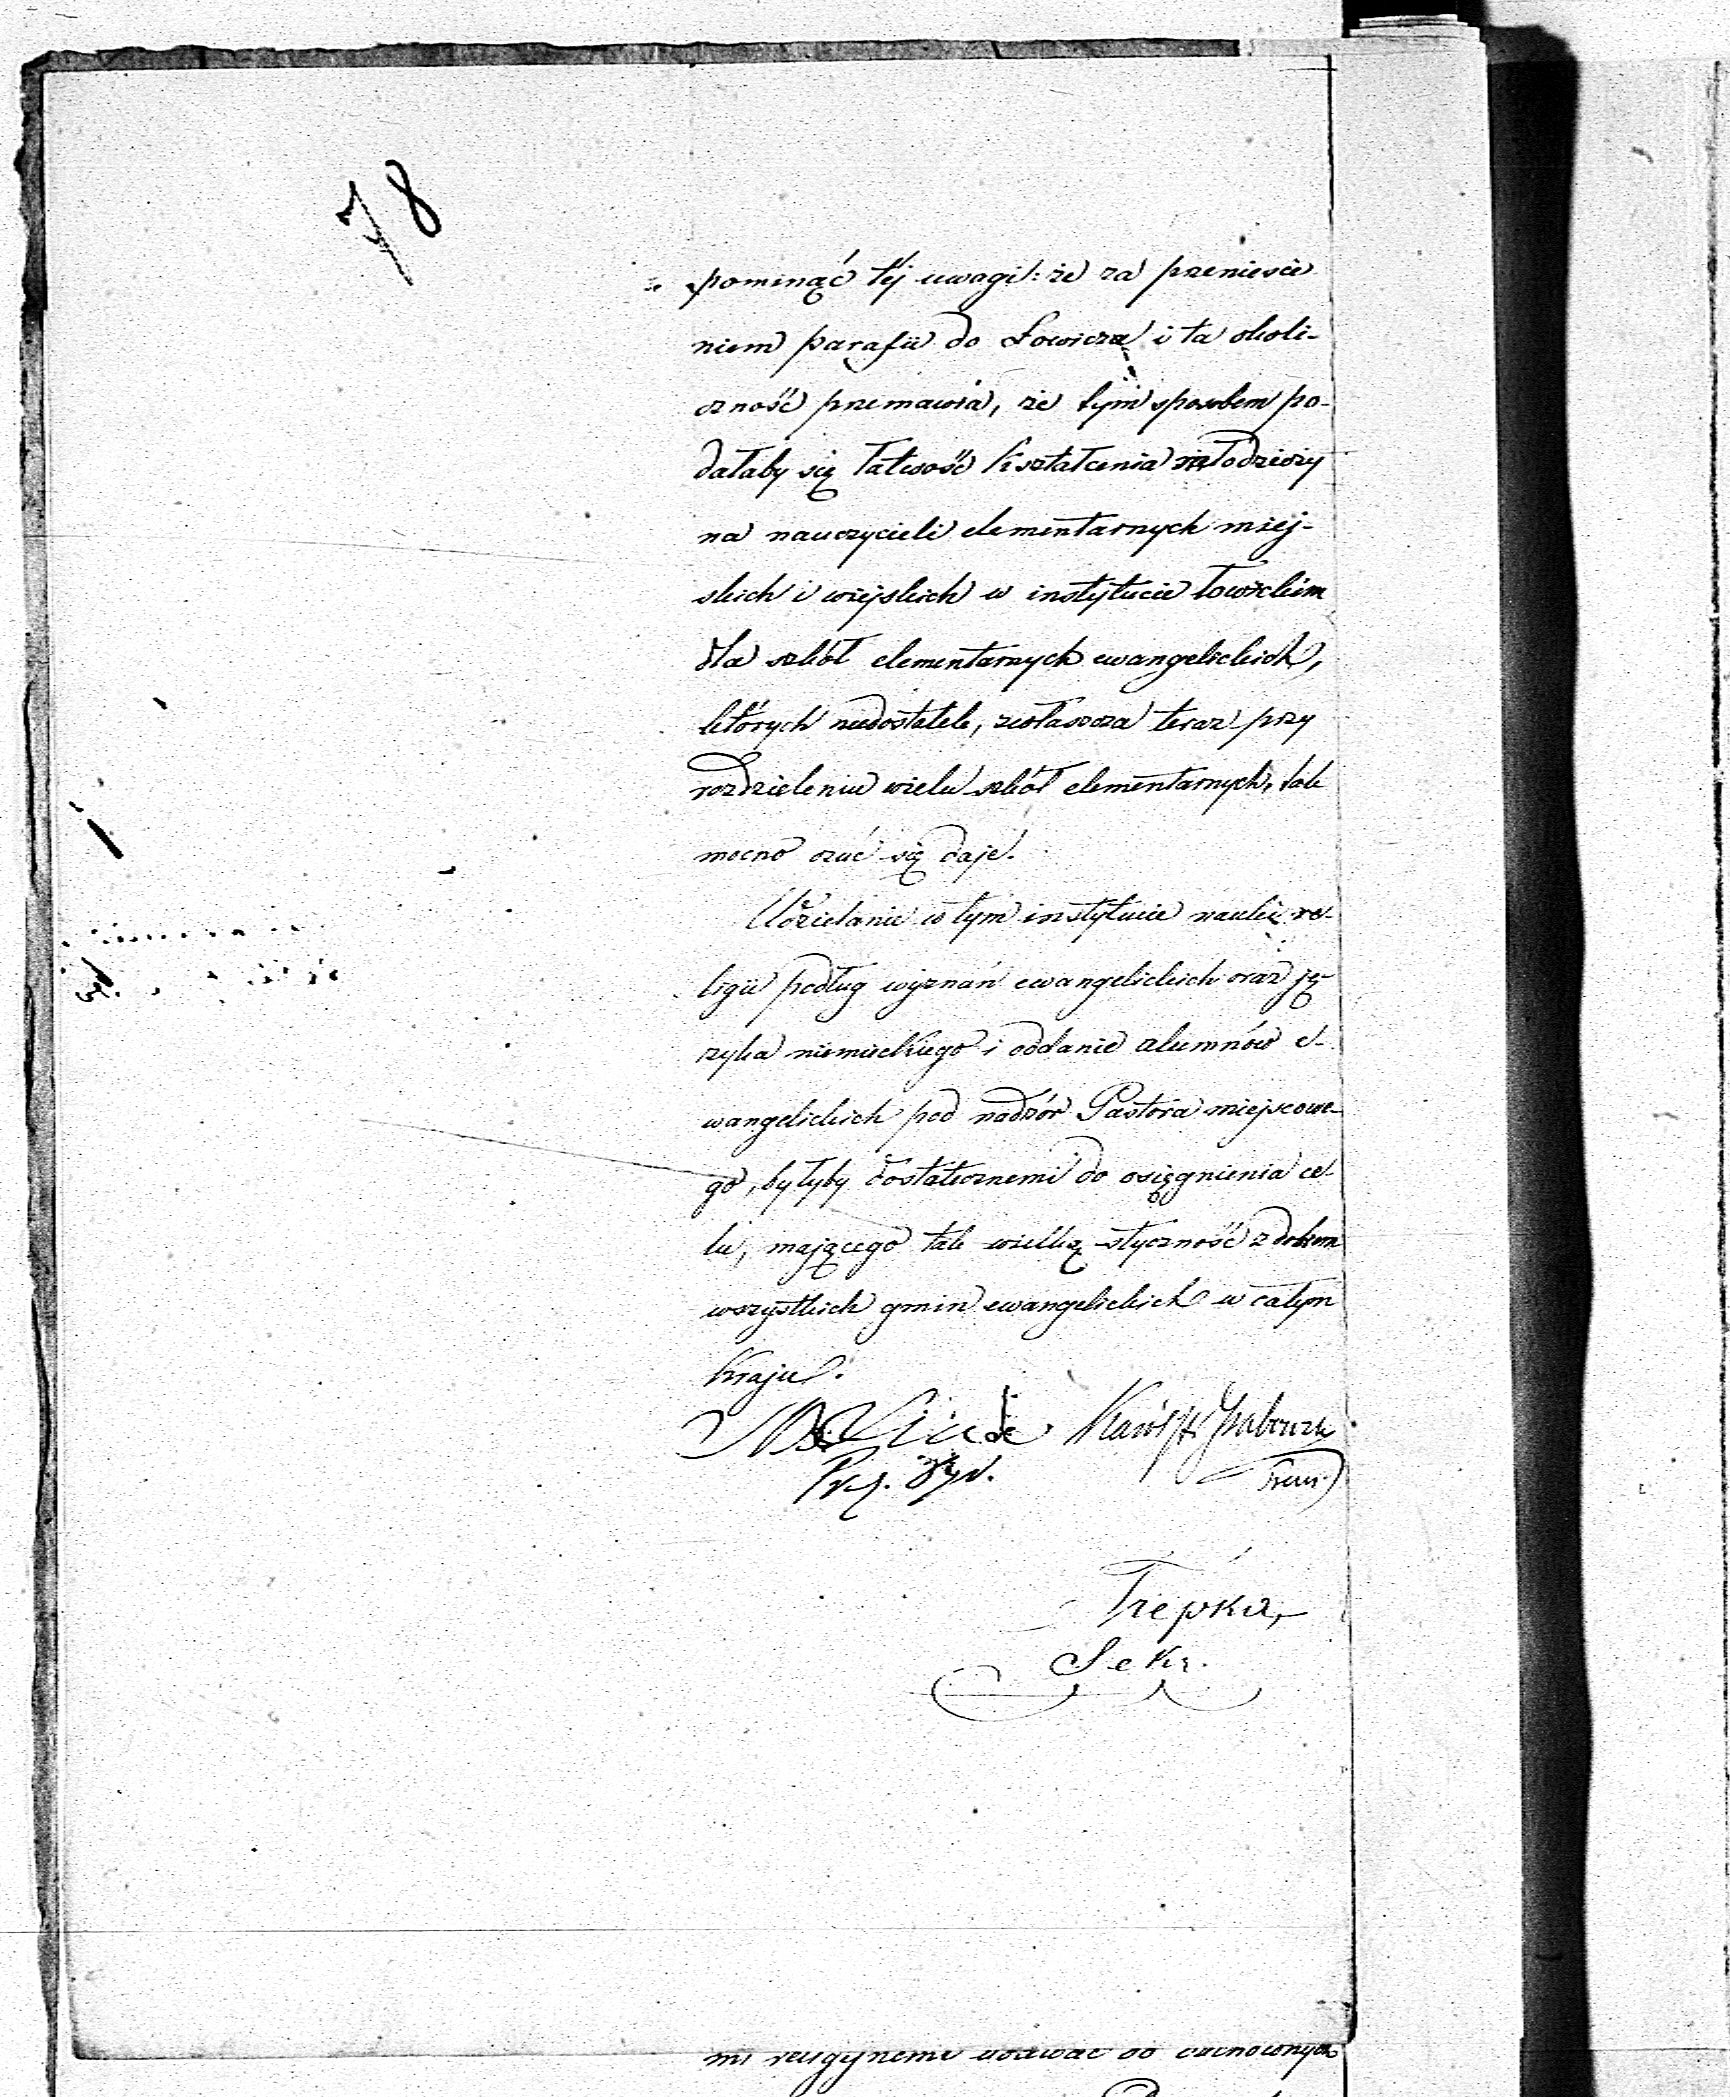 78
pominąć téj uwagi: że za przeniesie
niem parafii do Łowicza i ta okoli-
czność przemawia, że tym sposobem po-
dałaby się łatwość kształcenia młodzieży
na nauczycieli elementarnych miej-
skich i wiejskich w instytucie łowickim
dla szkół elementarnych ewangelickich,
których niedostatek, zwłaszcza teraz przy
rozdzieleniu wielu szkół elementarnych, tak
mocno czuć się daje.
Udzielanie w tym instytucie nauki re-
ligii podług wyznań ewangelickich oraz ję-
zyka niemieckiego i oddanie alumnów e-
wangelickich pod nadzór Pastora miejscowe-
go, byłyby dostatecznemi do osiągnienia ce-
lu, mającego tak wielką styczność z dobrem
wszystkich gmin ewangelickich w całym
kraju.
Linde Karól
Prez.
Trepka,
Sekr.